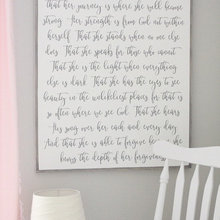 that her journey is where she will become
strong. Her strength is from God not within
herself. That she stands when no one else
does. That she speaks for those who cannot.
That she is the light when everything
else is dark. That she has the eyes to see
beauty in the unlikeliest places for that is
so often where we see God. That she hears
His song over her each and every day.
And that she is able to forgive because she
knows the depth of her forgiveness.